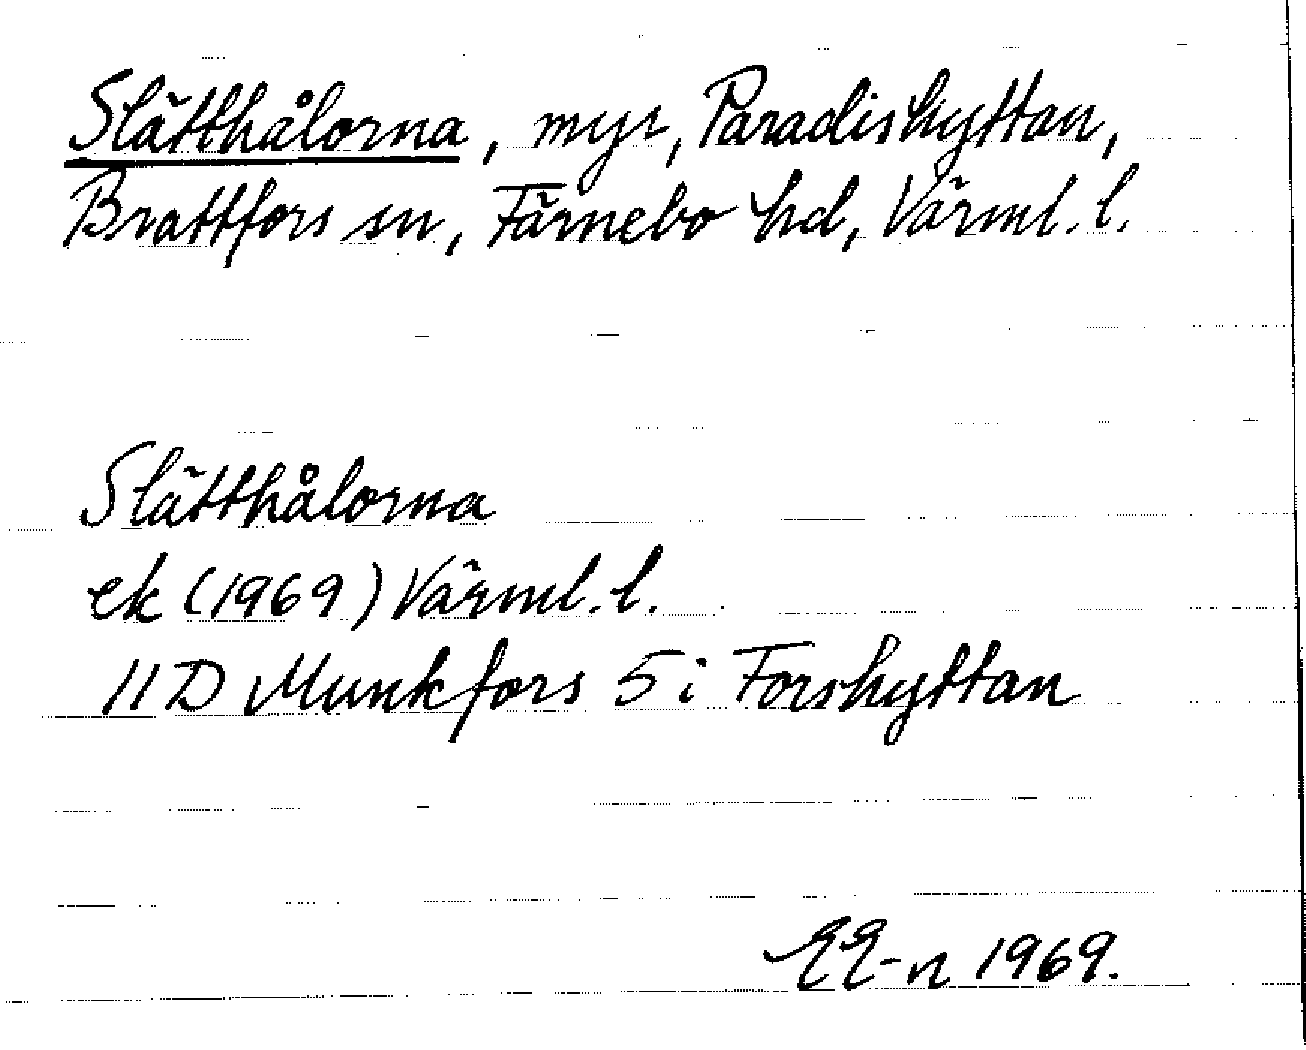 Slätthålorna, myr, Paradishyttan,
Brattfors sn, Färnebo hd, Värml. l.
Slätthålorna
ek (1969) Värml. l.
11D Munkfors 5i Forshyttan
EE-n 1969.